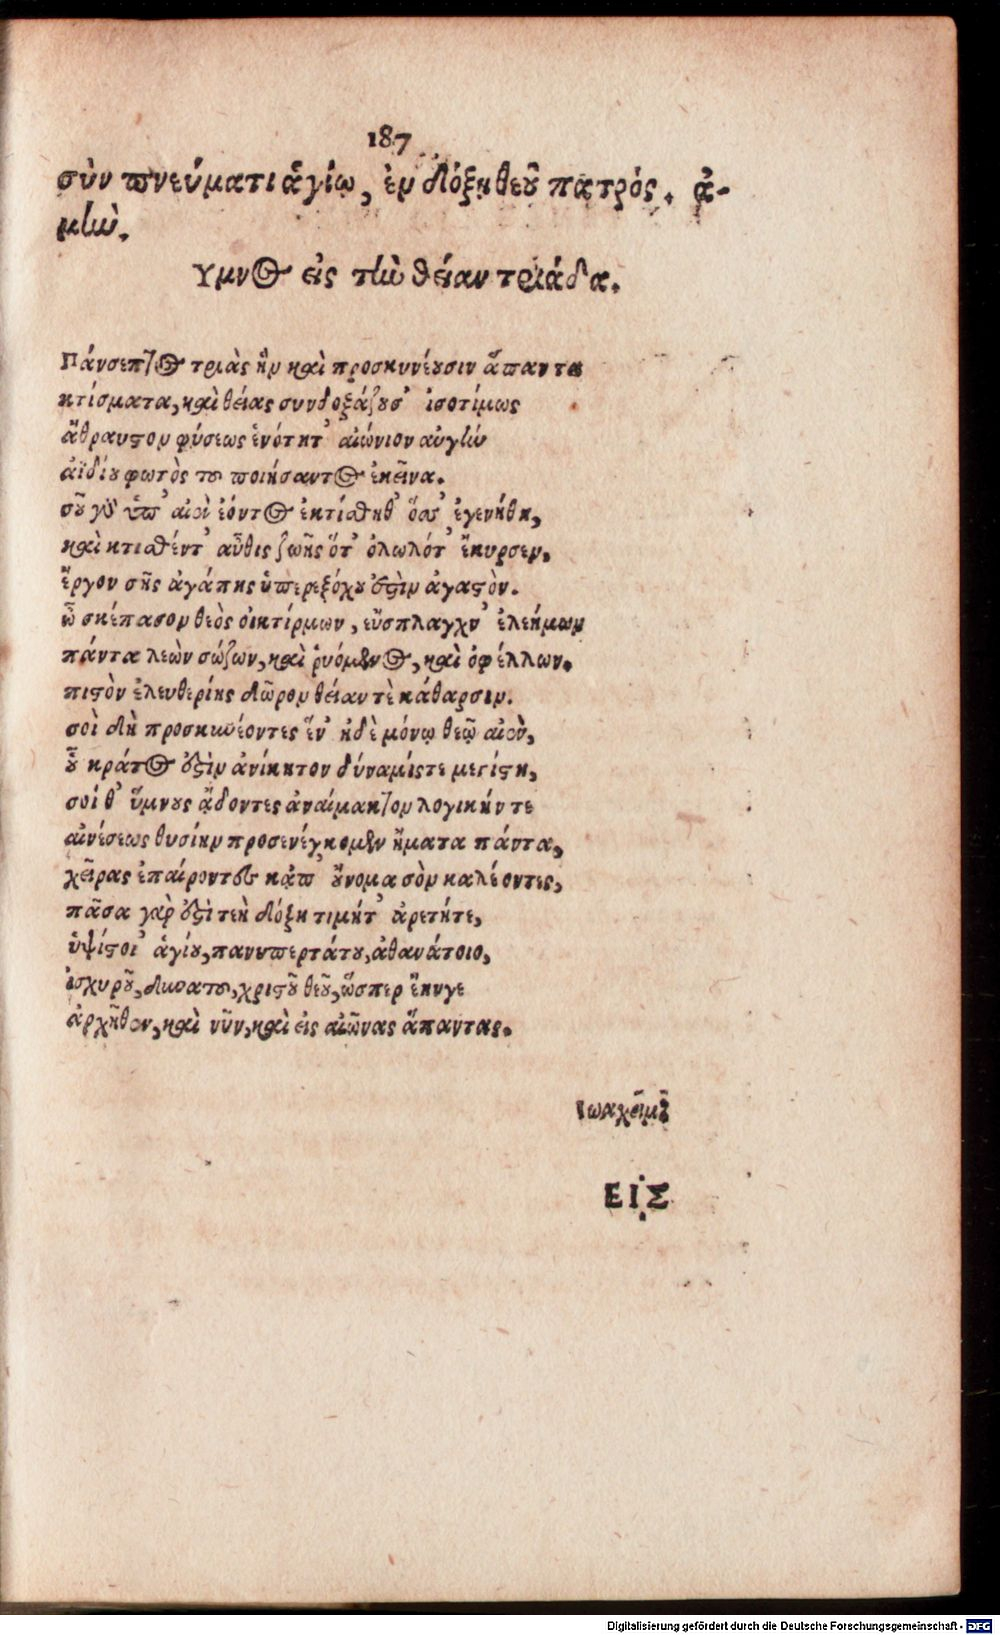 187
σὺν πνεύματι ἁγίῳ, ἐν δόξῃ θεοῦ πατρός. ἀ-
μήν.
Υμνος εἰς τὴν θείαν τριάδα.
Πάνσεπτος τριὰς ἣν καὶ προσκυνέουσιν ἅπαντα
κτίσματα, καὶ θείας συνδοξάζουσ' ἰσοτίμως
ἄθραυστον φύσεως ἑνότητ' αἰώνιον αὐγὴν
ἀϊδίου φωτὸς τοῦ ποιήσαντος ἐκεῖνα.
σοῦ γὰρ ὑπ' αἰεὶ ἐόντος ἐκτίσθηθ' ὅσ' ἐγενήθη,
καὶ κτισθέντ' αὖθις ζωῆς ὅτ' ὀλωλότ' ἔκυρσεν,
ἔργον σῆς ἀγάπης ὑπερεξόχου ἐστὶν ἀγαστὸν.
ὦ σκέπασον θεὸς οἰκτίρμων, εὔσπλαγχν' ἐλεήμων
πάντα λεὼν σώζων, καὶ ῥυόμενος, καὶ ὀφέλλων.
πιστὸν ἐλευθερίης δῶρον θείαν τὲ κάθαρσιν.
σοὶ δὴ προσκυνέοντες ἕν' ἠδὲ μόνῳ θεῷ αἰεὶ,
οὗ κράτος ἐστὶν ἀνίκητον δύναμίς τε μεγίστη,
σοί θ' ὕμνους ᾄδοντες ἀναίμακτον λογικήν τε
αἰνέσεως θυσίην προσενέγκομεν ἤματα πάντα,
χεῖρας ἐπαίροντες κἀπ' οὔνομα σὸν καλέοντες,
πᾶσα γὰρ ἐστὶ τεὴ δόξη τιμήτ' ἀρετήτε,
ὑψίστοι' ἁγίου, πανυπερτάτου, ἀθανάτοιο,
ἰσχυροῦ, δικαίου, χριστοῦ θεοῦ, ὥσπερ ἔηνγε
ἀρχῆθεν, καὶ νῦν, καὶ εἰς αἰῶνας ἅπαντας.
ΕΙΣ
Digitalisierung gefördert durch die Deutsche Forschungsgemeinschaft - DFG